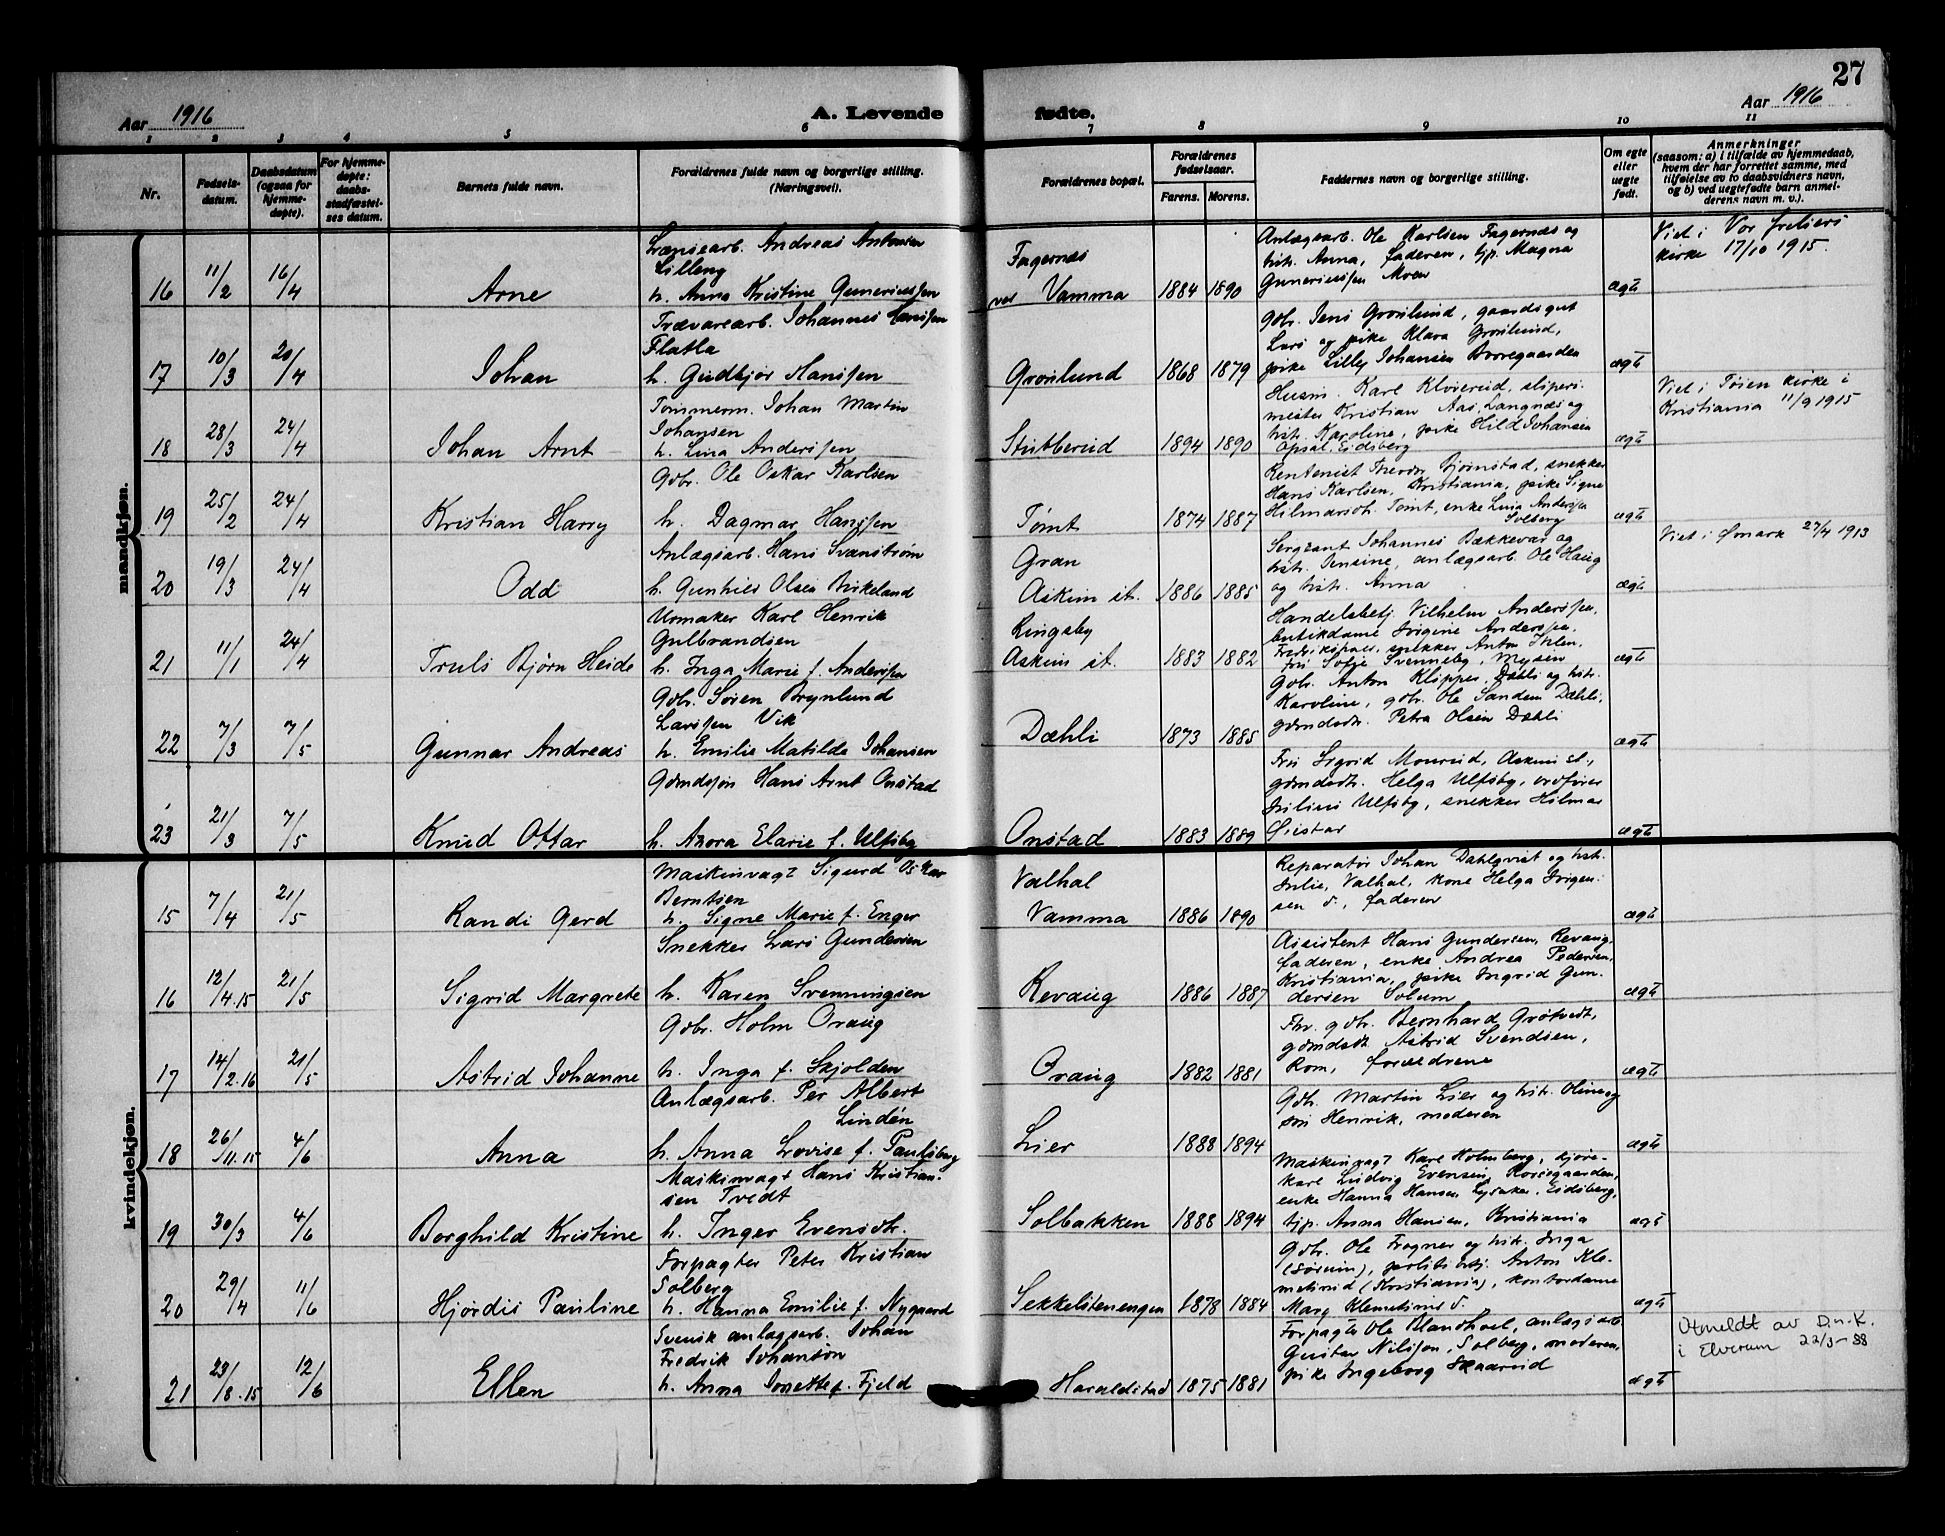 27
Aar 1916
A. Levende
fødte.
Aar 1916
1 2 3 4 5 6 7 8 9 10 11
Nr.
Fødsels-
datum.
Daabsdatum
(ogsaa for
hjemme-
døpte).
For hjemme-
døpte:
daabs-
stadfæstel-
ses datum.
Barnets fulde navn.
Forældrenes fulde navn og borgerlige stilling.
(Næringsvei).
Forældrenes bopæl.
Forældrenes
fødselsaar.
Farens. Morens.
Faddernes navn og borgerlige stilling.
Om egte
eller
uegte
født.
Anmerkninger
(saasom: a) i tilfælde av hjemmedaab,
hvem der har forrettet samme, med
tilføielse av to daabsvidners navn,
og b) ved uegtefødte barn anmel-
derens navn m. v.).
mandkjøn.
16 11/2 16/4 Arne
Andreas Antonsen
Lilleng
h. Anna Kristine Guneriussen
Fagernes
ved Vamma 1884 1890
Anlægsarb. Ole Karlsen Fagernes og
hstr. Anna, faderen, tjp. Magna
Guneriussen Moen
ægte
Viet i Vor Frelsers
kirke 17/10 1915.
17 10/3 20/4 Johan
Trævarearb. Johannes Hanssen
Flatla
h. Gudbjør Hanssen
Grønlund 1868 1879
Gbr. Jens Grønlund, gaardsgut
Lars og pike Klara Grønlund,
pike Lilly Johansen Borregaarden
ægte
18 28/3 24/4 Johan Arnt
Tømmerm. Johan Martin
Johansen
h. Lina Anderssen
Stubberud 1894 1890
Husm. Karl Kloverud, sliperi-
mester Kristian Aas, Langnæs og
hstr. Karoline, pike Hild Johansen
Opsal, Eidsberg
ægte
Viet i Tøien kirke i
Kristiania 11/9 1915
19 25/2 24/4 Kristian Harry
Gbr. Ole Oskar Karlsen
h. Dagmar Hanssen
Tømt 1874 1887
Rentenist Bjørnstad, snekker
Hans Karlsen, Kristiania, pike Signe
Hilmarsdt. Tømt, enke Lina Anderssen
Solberg
ægte
20 19/3 24/4 Odd
Anlægsarb. Hans Svanstrøm
h. Gunhild Olsen Birkeland
Gran
Askim st. 1886 1885
Sergeant Johannes Bækkevar og
hstr. Jensine, anlægsarb. Ole Haug
og hstr. Anna
ægte
Viet i Ømark 27/4 1913
21 11/1 24/4 Truls Bjørn Heide
Urmaker Karl Henrik
Gulbrandsen
h. Inga Marie f. Anderssen
Ringsby
Askim st. 1883 1882
Handelsbetj. Vilhelm Anderssen,
butikdame Anderssen,
snekker Anton Ihlen,
frk Sofie Svenneby, Mysen
ægte
22 7/3 7/5 Gunnar Andreas
Gbr. Søren Brynlund
Larssen Vik
h. Emilie Matilde Johansen
Dæhli 1873 1885
Gbr. Anton Klipper, Dæhli og hstr.
Karoline, gbr. Ole Sandem Dæhli,
gdmdsdt. Petra Olsen Dæhli
ægte
23 21/3 7/5 Knud Ottar
Gdmdssøn Hans Arnt Onstad
h. Anora Elarie f. Ulfsby
Onstad 1883 1889
Frk Sigrid Monrud, Askim st.,
gdmdsdt. Helga Ulfsby, ordfører
Julius Ulfsby, snekker Hilmar
ægte
kvindekjøn.
15 7/4 21/5 Randi Gerd
Maskinvagt Sigurd Oskar
Berntsen
h. Signe Marie f. Enger
Valhal
Vamma 1886 1890
Reparatør Johan Dahlqvist og hstr.
Julie, Valhal, kone Helga Jørgen-
sen d., faderen
ægte
16 12/4.15 21/5 Sigrid Margrete
Snekker Lars Gundersen
h. Karen Svenningsen
Revaug 1886 1887
Assistent Hans Gundersen, Revaug,
faderen, enke Andrea Pedersen,
Kristiania, pike Ingrid Gun-
dersen Solum
ægte
17 14/2.16 21/5 Astrid Johanne
Gbr. Holm Oraug
h. Inga f. Skjolden
Oraug 1882 1881
Fhv. gbr. Bernhard Grøtvedt,
gdmdsdt Astrid Svendsen,
Rom, forældrene
ægte
18 26/11.15 4/6 Anna
Anlægsarb. Per Albert
Lindén
h. Anna Lovise f. Paulsberg
Lier 1888 1894
Gbr. Martin Lier og hstr. Oline og
søn Henrik, moderen
ægte
19 30/3 4/6 Borghild Kristine
Maskinvagt Hans Kristian-
sen Tvedt
h. Inger Evensdtr.
Solbakken 1888 1894
Maskinvagt Karl Holmberg, kjøre-
karl Ludvig Evensen Korsegaarden,
enke Hanna Hansen Lysaker, Eidsberg,
tjp. Anna Hansen, Kristiania
ægte
20 29/4 11/6 Hjørdis Pauline
Forpagter Peter Kristian
Solberg
h. Hanna Emilie f. Nygaard
Sekkelstenengen 1878 1884
Gbr. Ole Frogner og hstr. Inga
(Sørum), politibtj. Anton Kle-
metsrud (Kristiania), kontordame
Marg Klemetsrud d.
ægte
21 23/8.15 12/6 Ellen
Svensk anlægsarb. Johan
Fredrik Johansson
h. Anna Jonette f. Fjeld
Haraldstad 1875 1881
Forpagter Ole Blandhoel, anlægsarb
Gustav Nilssen, Solberg, moderen,
pike Ingeborg Skaarud
ægte
Utmeldt av D.n.K.
i Elverum 22/3-88